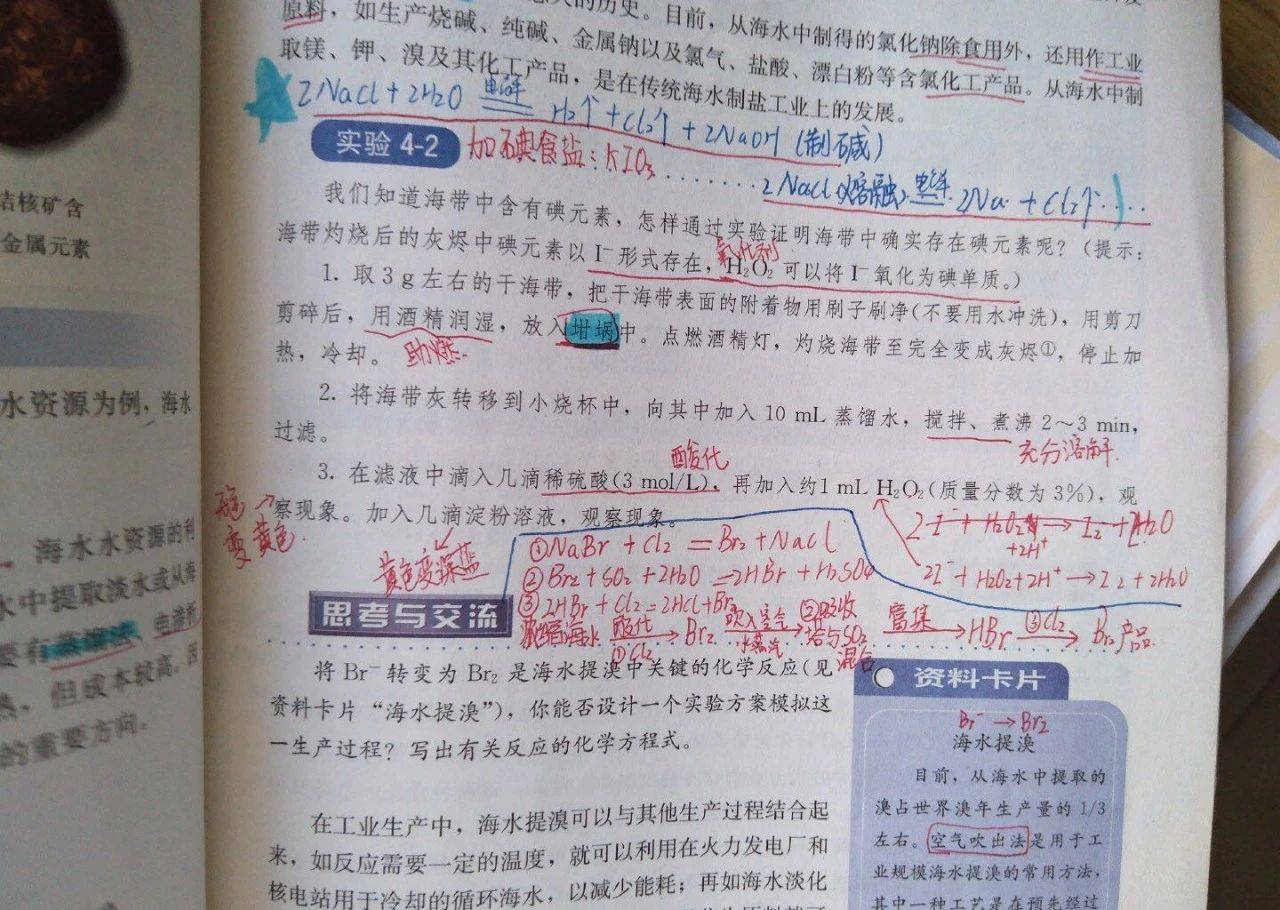 原料，如生产烧碱、纯碱、金属钠以及氯气、盐酸、漂白粉等含氯化工产品。从海水中制
的历史。目前，从海水中制得的氯化钠除食用外，还用作工业
取镁、钾、溴及其化工产品，是在传统海水制盐工业上的发展。
2NaCl+2H2O 电解 H2↑+Cl2↑+2NaOH (制碱)
实验 4-2
加碘食盐：KIO3
2NaCl(熔融) 电解 2Na+Cl2↑
我们知道海带中含有碘元素，怎样通过实验证明海带中确实存在碘元素呢？(提示：
海带灼烧后的灰烬中碘元素以 I⁻形式存在，H₂O₂ 可以将 I⁻氧化为碘单质。)
氧化剂
1. 取 3 g 左右的干海带，把干海带表面的附着物用刷子刷净(不要用水冲洗)，用剪刀
剪碎后，用酒精润湿，放入坩埚中。点燃酒精灯，灼烧海带至完全变成灰烬①，停止加
热，冷却。
助燃
2. 将海带灰转移到小烧杯中，向其中加入 10 mL 蒸馏水，搅拌、煮沸 2～3 min，
过滤。
充分溶解
酸化
3. 在滤液中滴入几滴稀硫酸(3 mol/L)，再加入约1 mL H₂O₂(质量分数为 3%)，观
察现象。加入几滴淀粉溶液，观察现象。
变黄色
黄色变深蓝
2I⁻+H2O2→I2+2H2O
+2H⁺
2I⁻+H2O2+2H⁺→I2+2H2O
①NaBr+Cl2=Br2+NaCl
②Br2+SO2+2H2O=2HBr+H2SO4
③2HBr+Cl2=2HCl+Br2
浓缩海水 酸化 ①Cl2 → Br2 吹入空气 水蒸汽 → ②吸收塔与SO2混合 富集 → HBr ③Cl2 → Br2产品
思考与交流
将 Br⁻ 转变为 Br₂ 是海水提溴中关键的化学反应(见
资料卡片“海水提溴”)，你能否设计一个实验方案模拟这
一生产过程？写出有关反应的化学方程式。
在工业生产中，海水提溴可以与其他生产过程结合起
来，如反应需要一定的温度，就可以利用在火力发电厂和
核电站用于冷却的循环海水，以减少能耗；再如海水淡化
资料卡片
Br⁻→Br2
海水提溴
目前，从海水中提取的
溴占世界溴年生产量的 1/3
左右。空气吹出法是用于工
业规模海水提溴的常用方法，
其中一种工艺是在预先经过
结核矿含
金属元素
水资源为例，海水
海水水资源的利
水中提取淡水或从海
要有蒸馏法、电渗析
热，但成本较高。因
的重要方向。